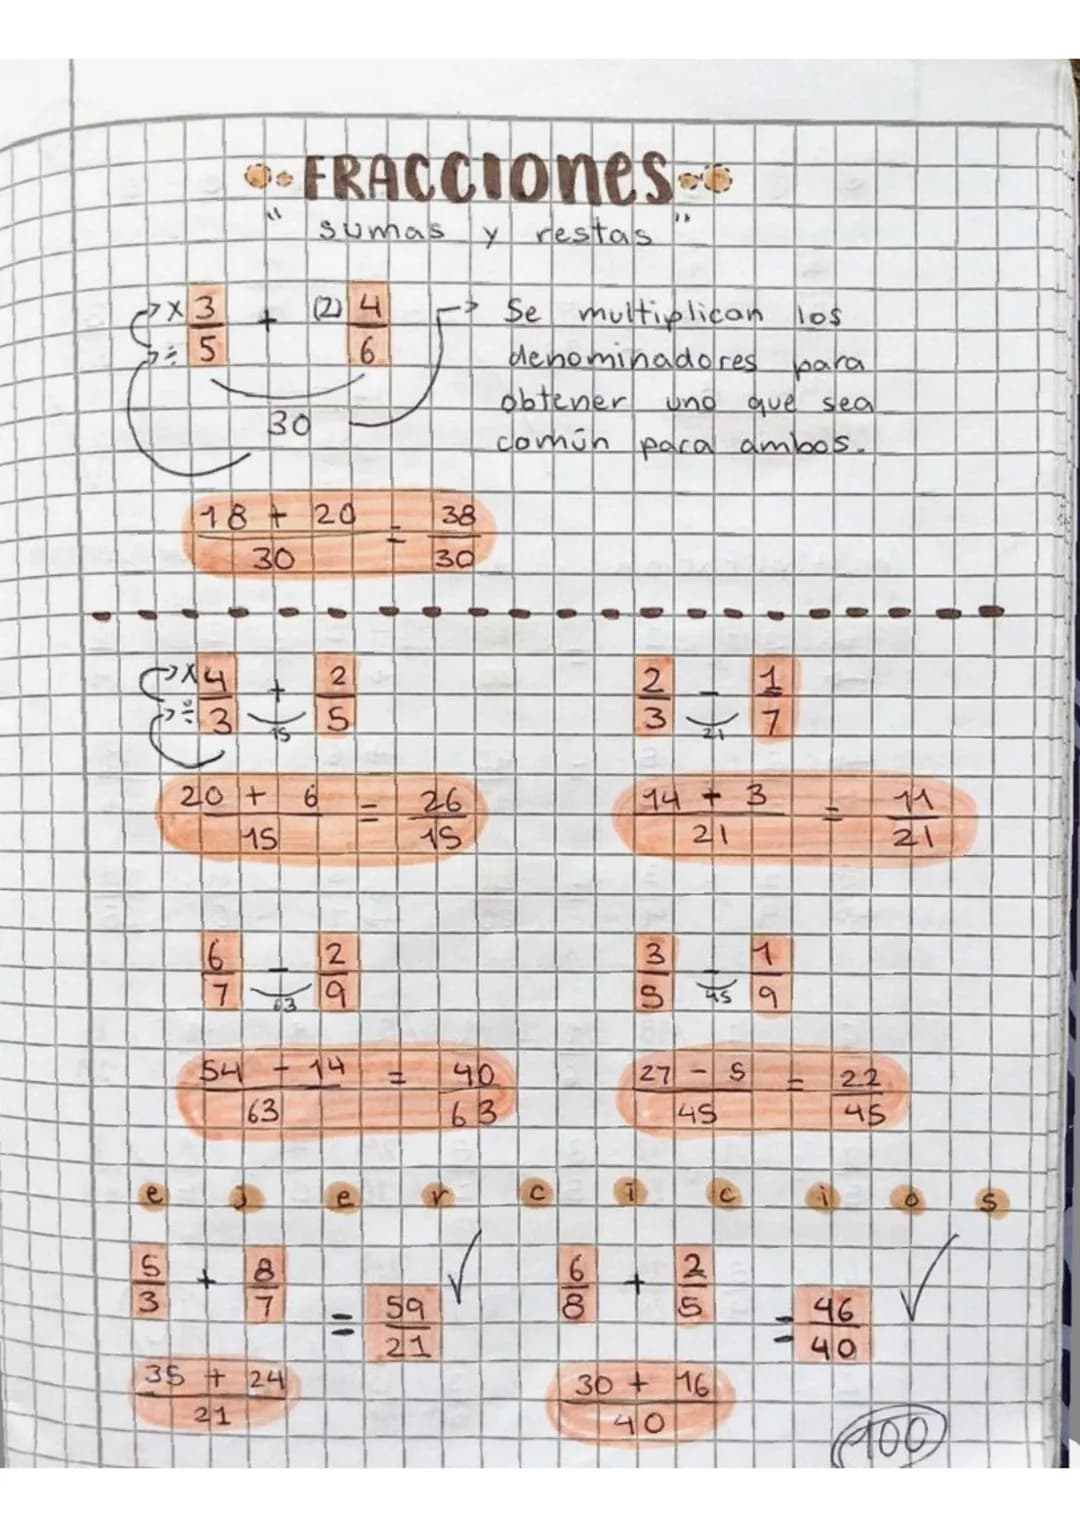 FRACCIONES
" sumas y restas "
x 3/5 + (2) 4/6
÷
30
Se multiplican los
denominadores para
obtener uno que sea
común para ambos.
18 + 20 / 30 = 38/30
x 4/3 + 2/5
÷
15
20 + 6 / 15 = 26/15
2/3 - 1/7
21
14 + 3 / 21 = 11/21
6/7 - 2/9
63
54 - 14 / 63 = 40/63
3/5 - 1/9
45
27 - 5 / 45 = 22/45
ejercicios
5/3 + 8/7 = 59/21
35 + 24 / 21
6/8 + 2/5 = 46/40
30 + 16 / 40
100